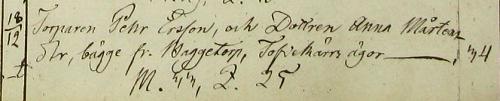 18/12 Torparen Pehr Ersson, och Dottren Anna Mårtens
dtr, bägge fr. Haggetorp, Tofvehärrs ägor ——— , "4
M. "1", Q. 25